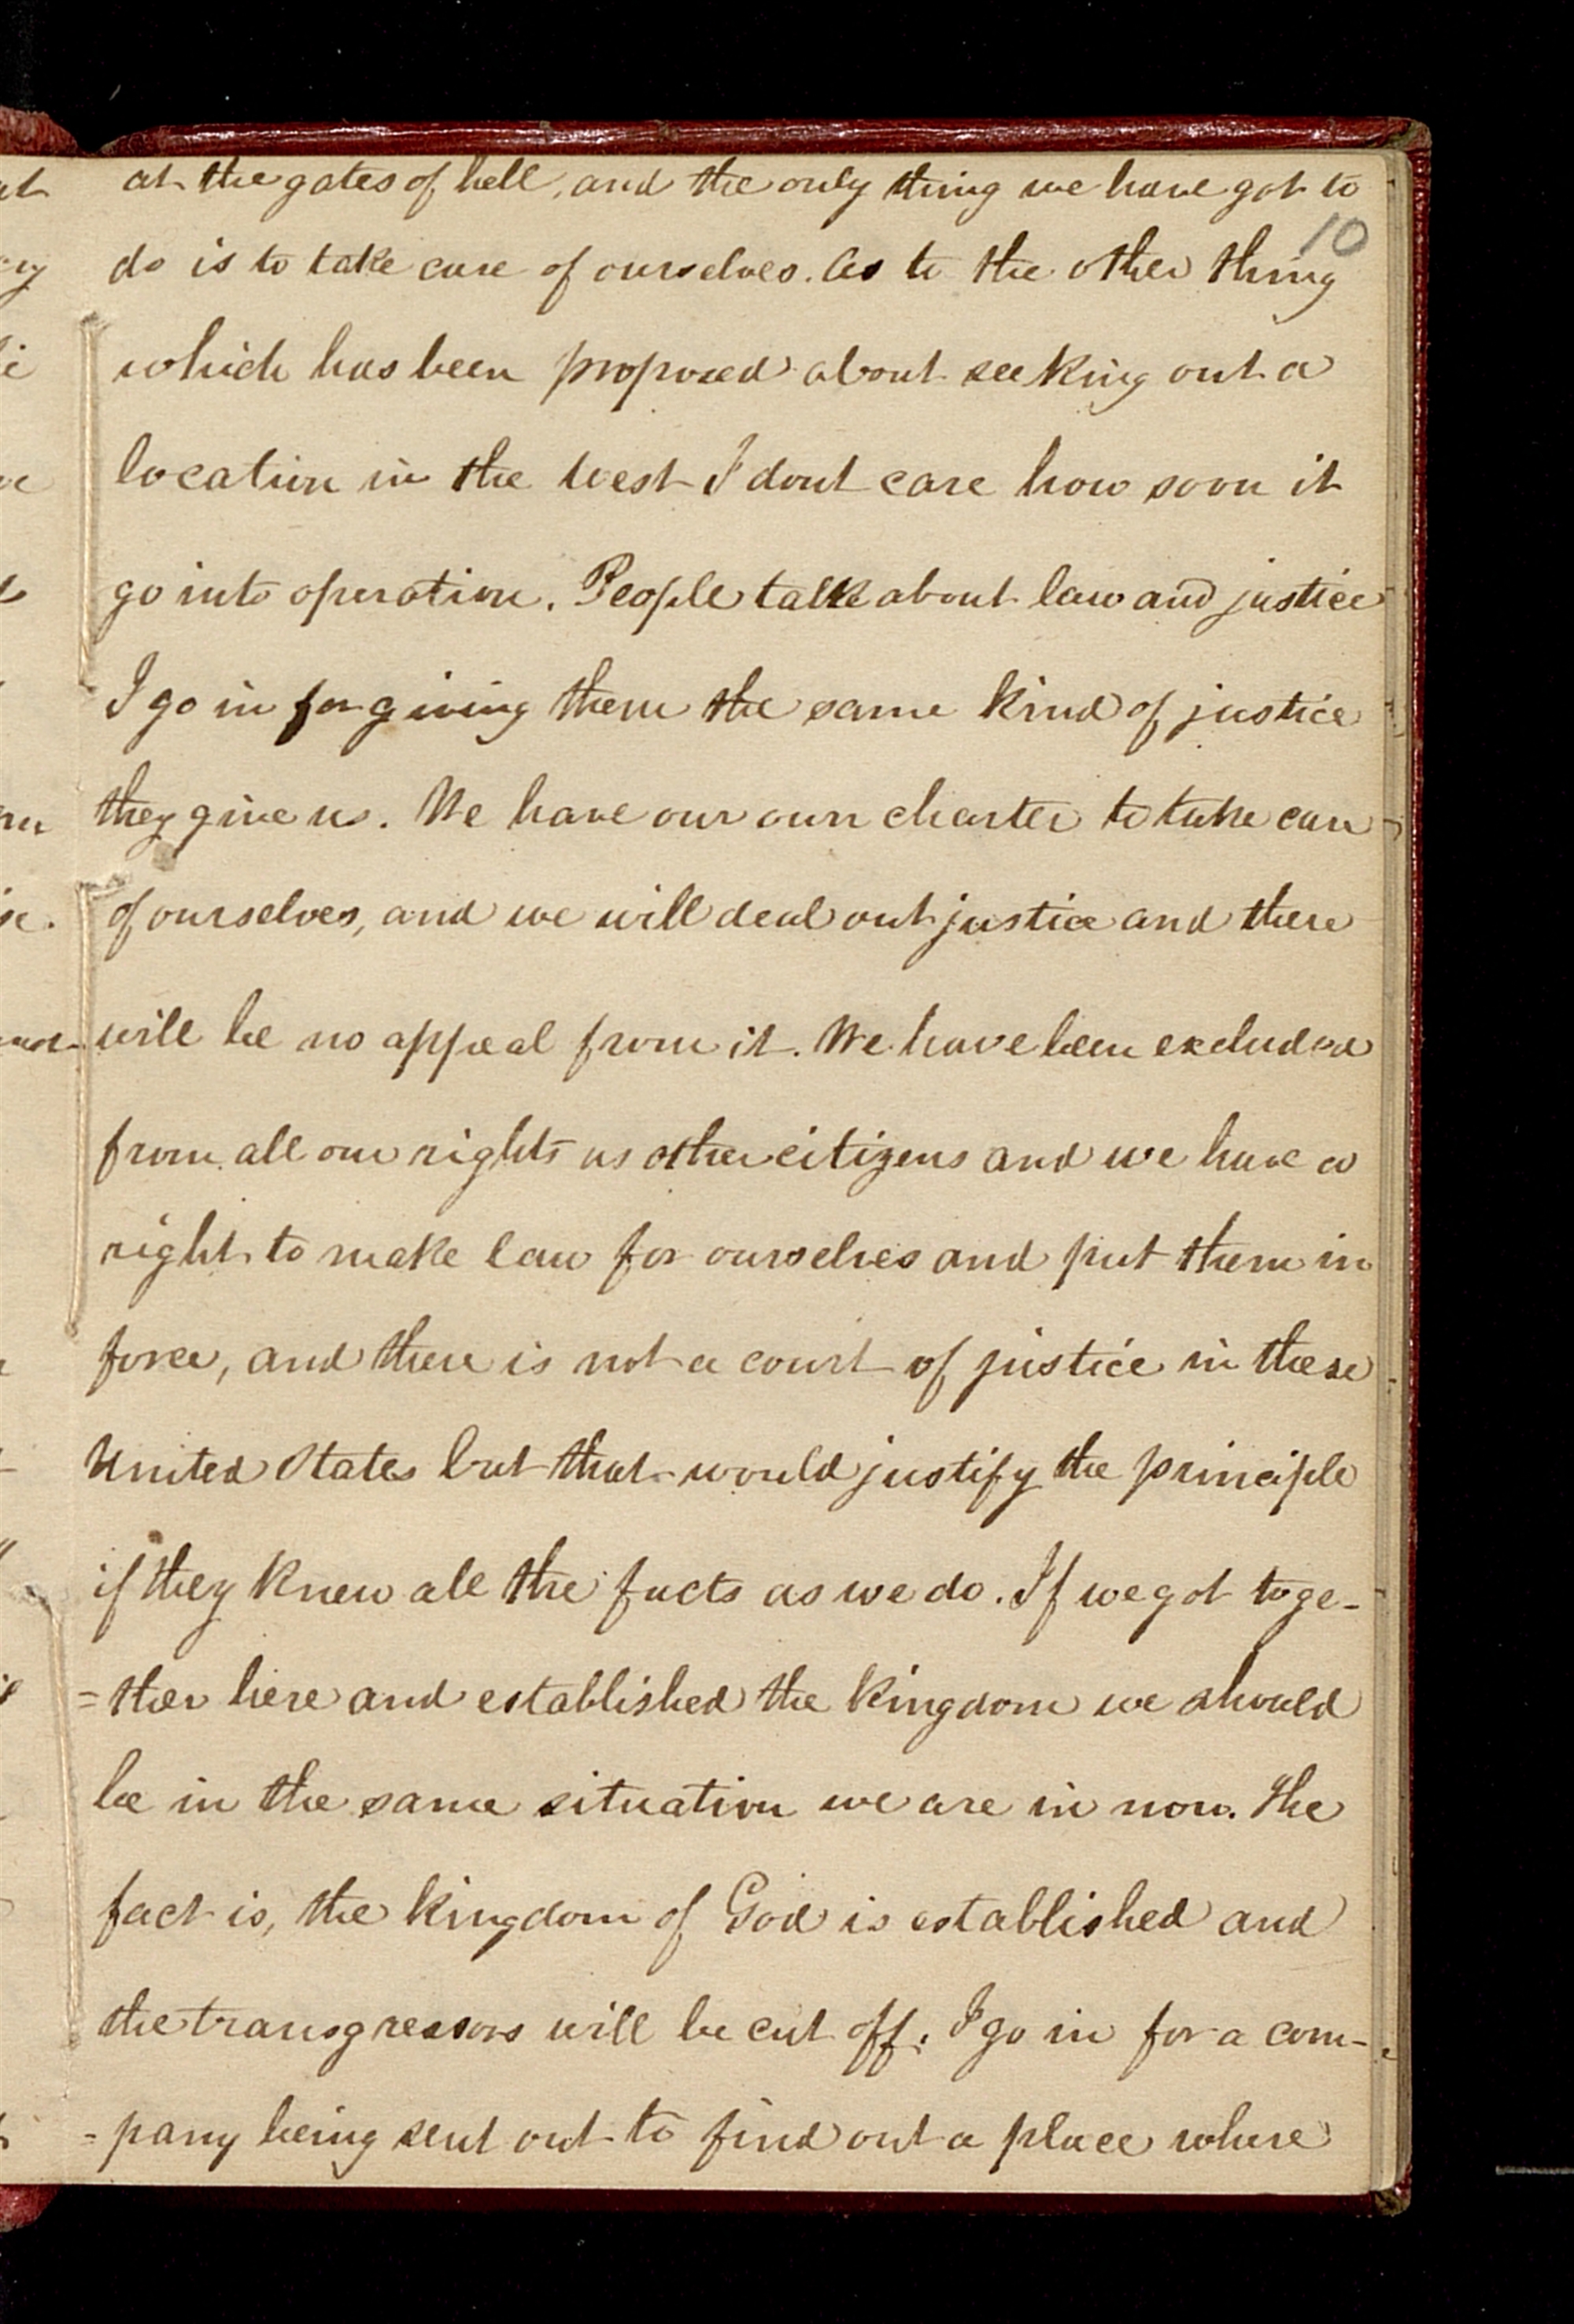 at the gates of hell, and the only thing we have got to
10
do is to take care of ourselves. As to the other thing
which has been proposed about seeking out a
location in the West I dont care how soon it
go into operation. People talk about law and justice
I go in for giving them the same kind of justice
they give us. We have our own charter to take care
of ourselves, and we will deal out justice and there
will be no appeal from it. We have been excluded
from all our rights as other citizens and we have a
right to make law for ourselves and put them in
force, and there is not a court of justice in these
United States but that would justify the principle
if they knew all the facts as we do. If we got toge-
=ther here and established the kingdom we should
be in the same situation we are in now. The
fact is, the kingdom of God is established and
the transgressors will be cut off. I go in for a com-
=pany being sent out to find out a place where